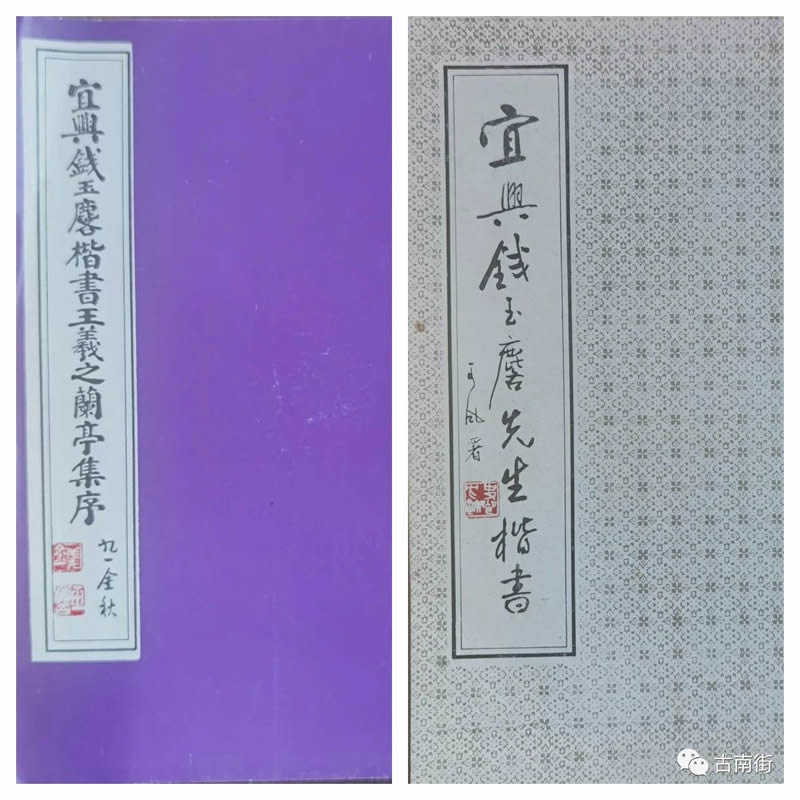 宜興錢玉麐楷書王羲之蘭亭集序
九一金秋
宜興錢玉麐先生楷書
署
古南街